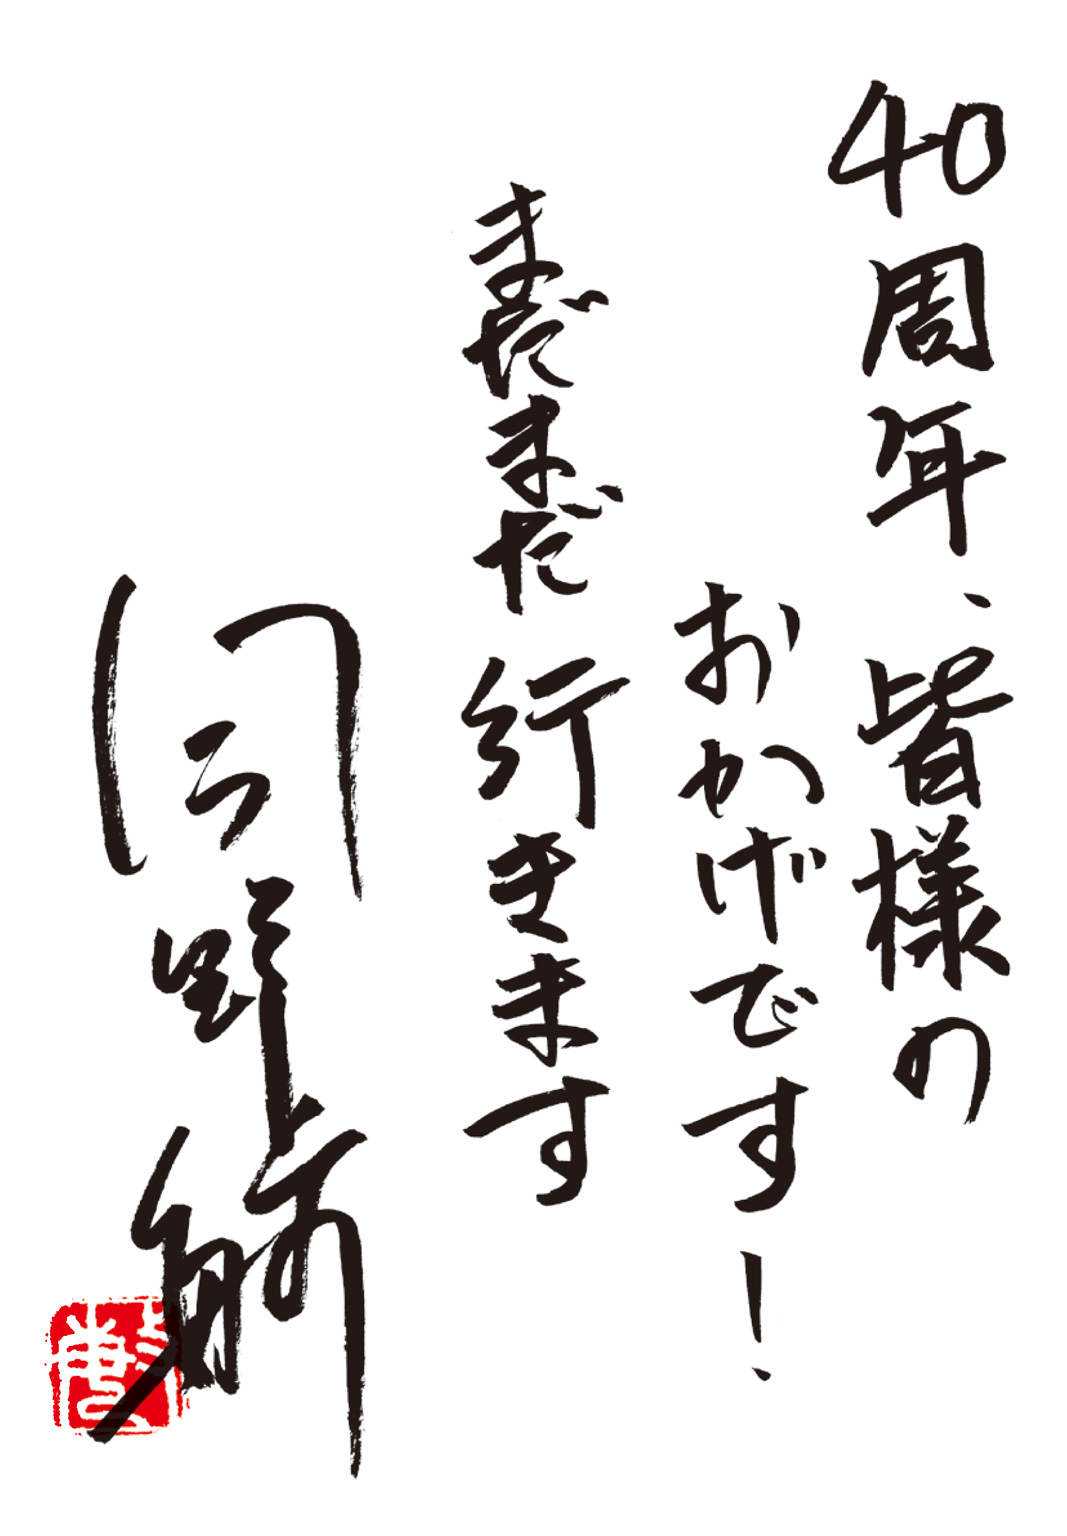 40周年、皆様の
おかげです！
まだまだ行きます